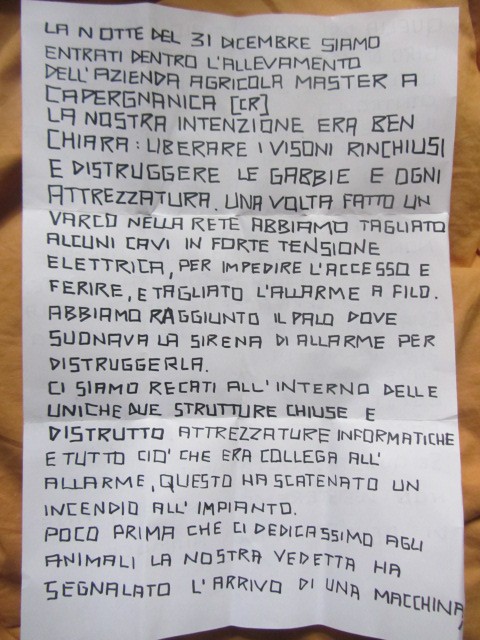 LA NOTTE DEL 31 DICEMBRE SIAMO
ENTRATI DENTRO L'ALLEVAMENTO
DELL'AZIENDA AGRICOLA MASTER A
CAPERGNANICA [CR]
LA NOSTRA INTENZIONE ERA BEN
CHIARA: LIBERARE I VISONI RINCHIUSI
E DISTRUGGERE LE GABBIE E OGNI
ATTREZZATURA. UNA VOLTA FATTO UN
VARCO NELLA RETE ABBIAMO TAGLIATO
ALCUNI CAVI IN FORTE TENSIONE
ELETTRICA, PER IMPEDIRE L'ACCESSO E
FERIRE, E TAGLIATO L'ALLARME A FILO.
ABBIAMO RAGGIUNTO IL PALO DOVE
SUONAVA LA SIRENA DI ALLARME PER
DISTRUGGERLA.
CI SIAMO RECATI ALL'INTERNO DELLE
UNICHE DUE STRUTTURE CHIUSE E
DISTRUTTO ATTREZZATURE INFORMATICHE
E TUTTO CIO' CHE ERA COLLEGA ALL'
ALLARME, QUESTO HA SCATENATO UN
INCENDIO ALL'IMPIANTO.
POCO PRIMA CHE CI DEDICASSIMO AGLI
ANIMALI LA NOSTRA VEDETTA HA
SEGNALATO L'ARRIVO DI UNA MACCHINA,